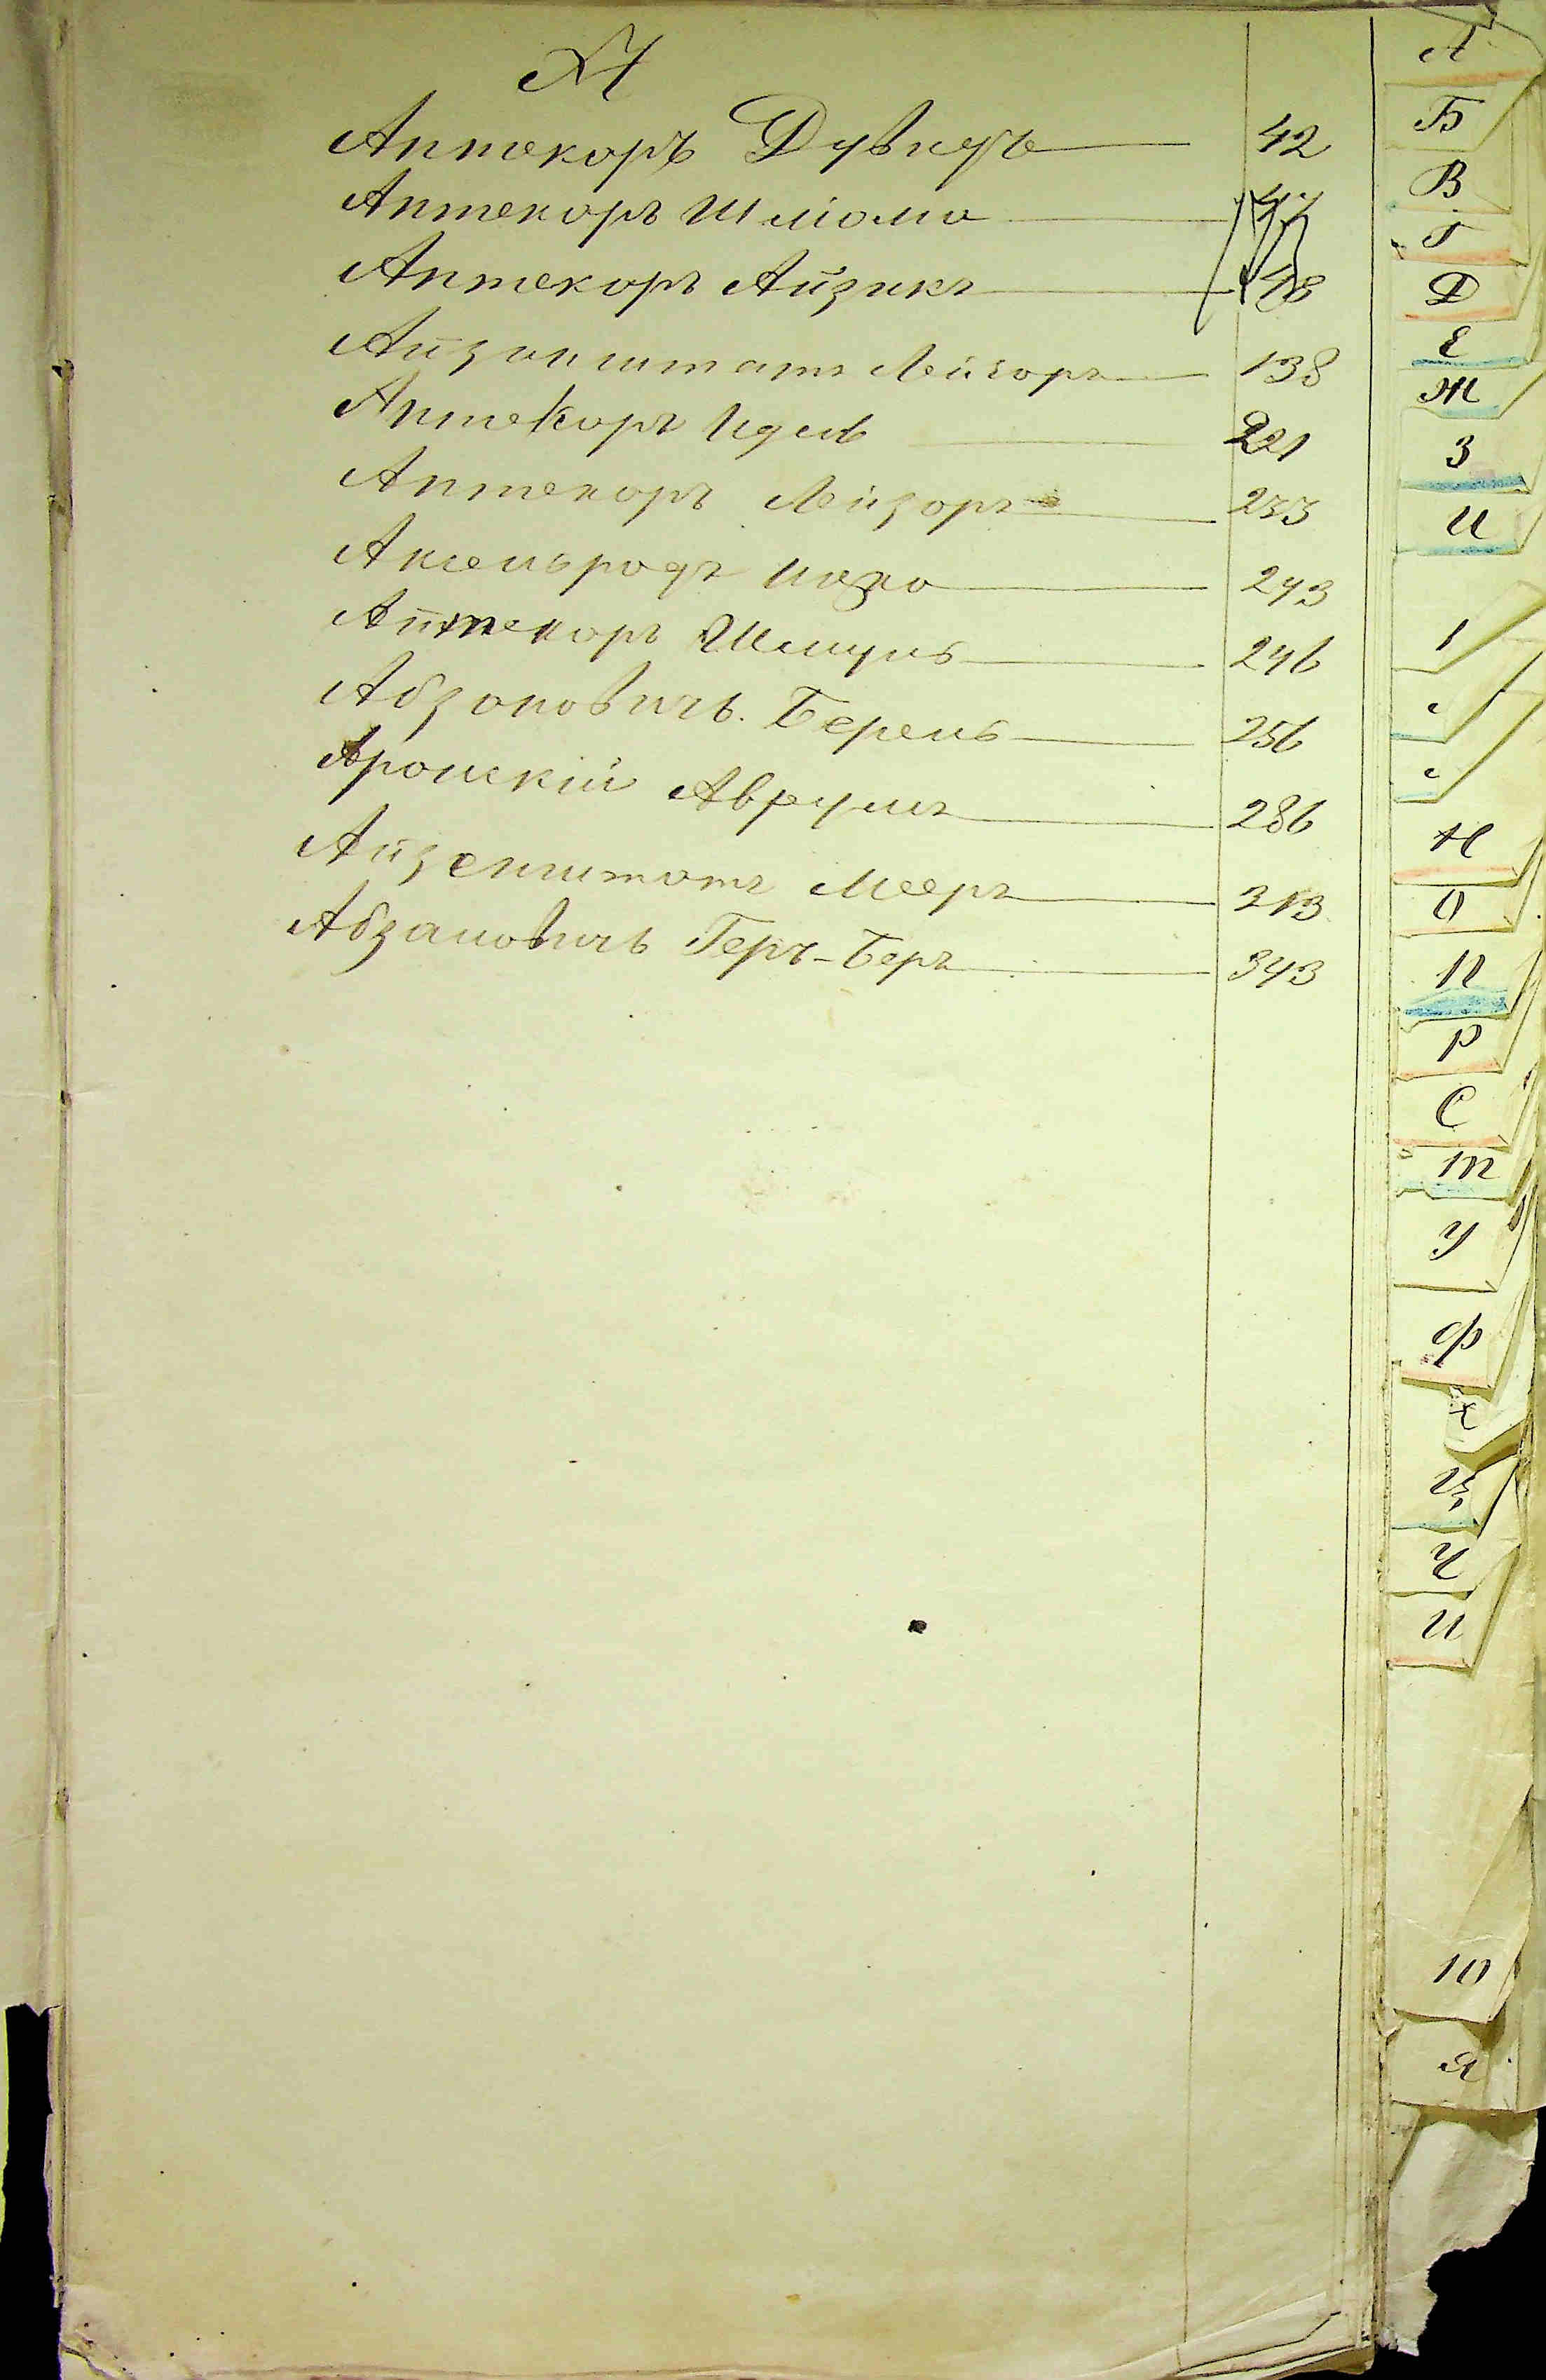 А
Аптекоръ Дувидъ 42
Аптекоръ Шліома 47
Аптекоръ Айзикъ 48
Айзенштатъ Лейзоръ 138
Аптекоръ Идель 221
Аптекоръ Лейзоръ 233
Аксельродъ 243
Аптекоръ Шмуль 246
Абзановичъ Берель 256
Аронскій Аврумъ 286
Айзенштотъ Мееръ 313
Абзановичъ Геръ-Беръ 343
А
Б
В
Г
Д
Е
Ж
З
И
І
Н
О
П
Р
С
Т
У
Ф
Х
Ц
Ч
Ю
Я